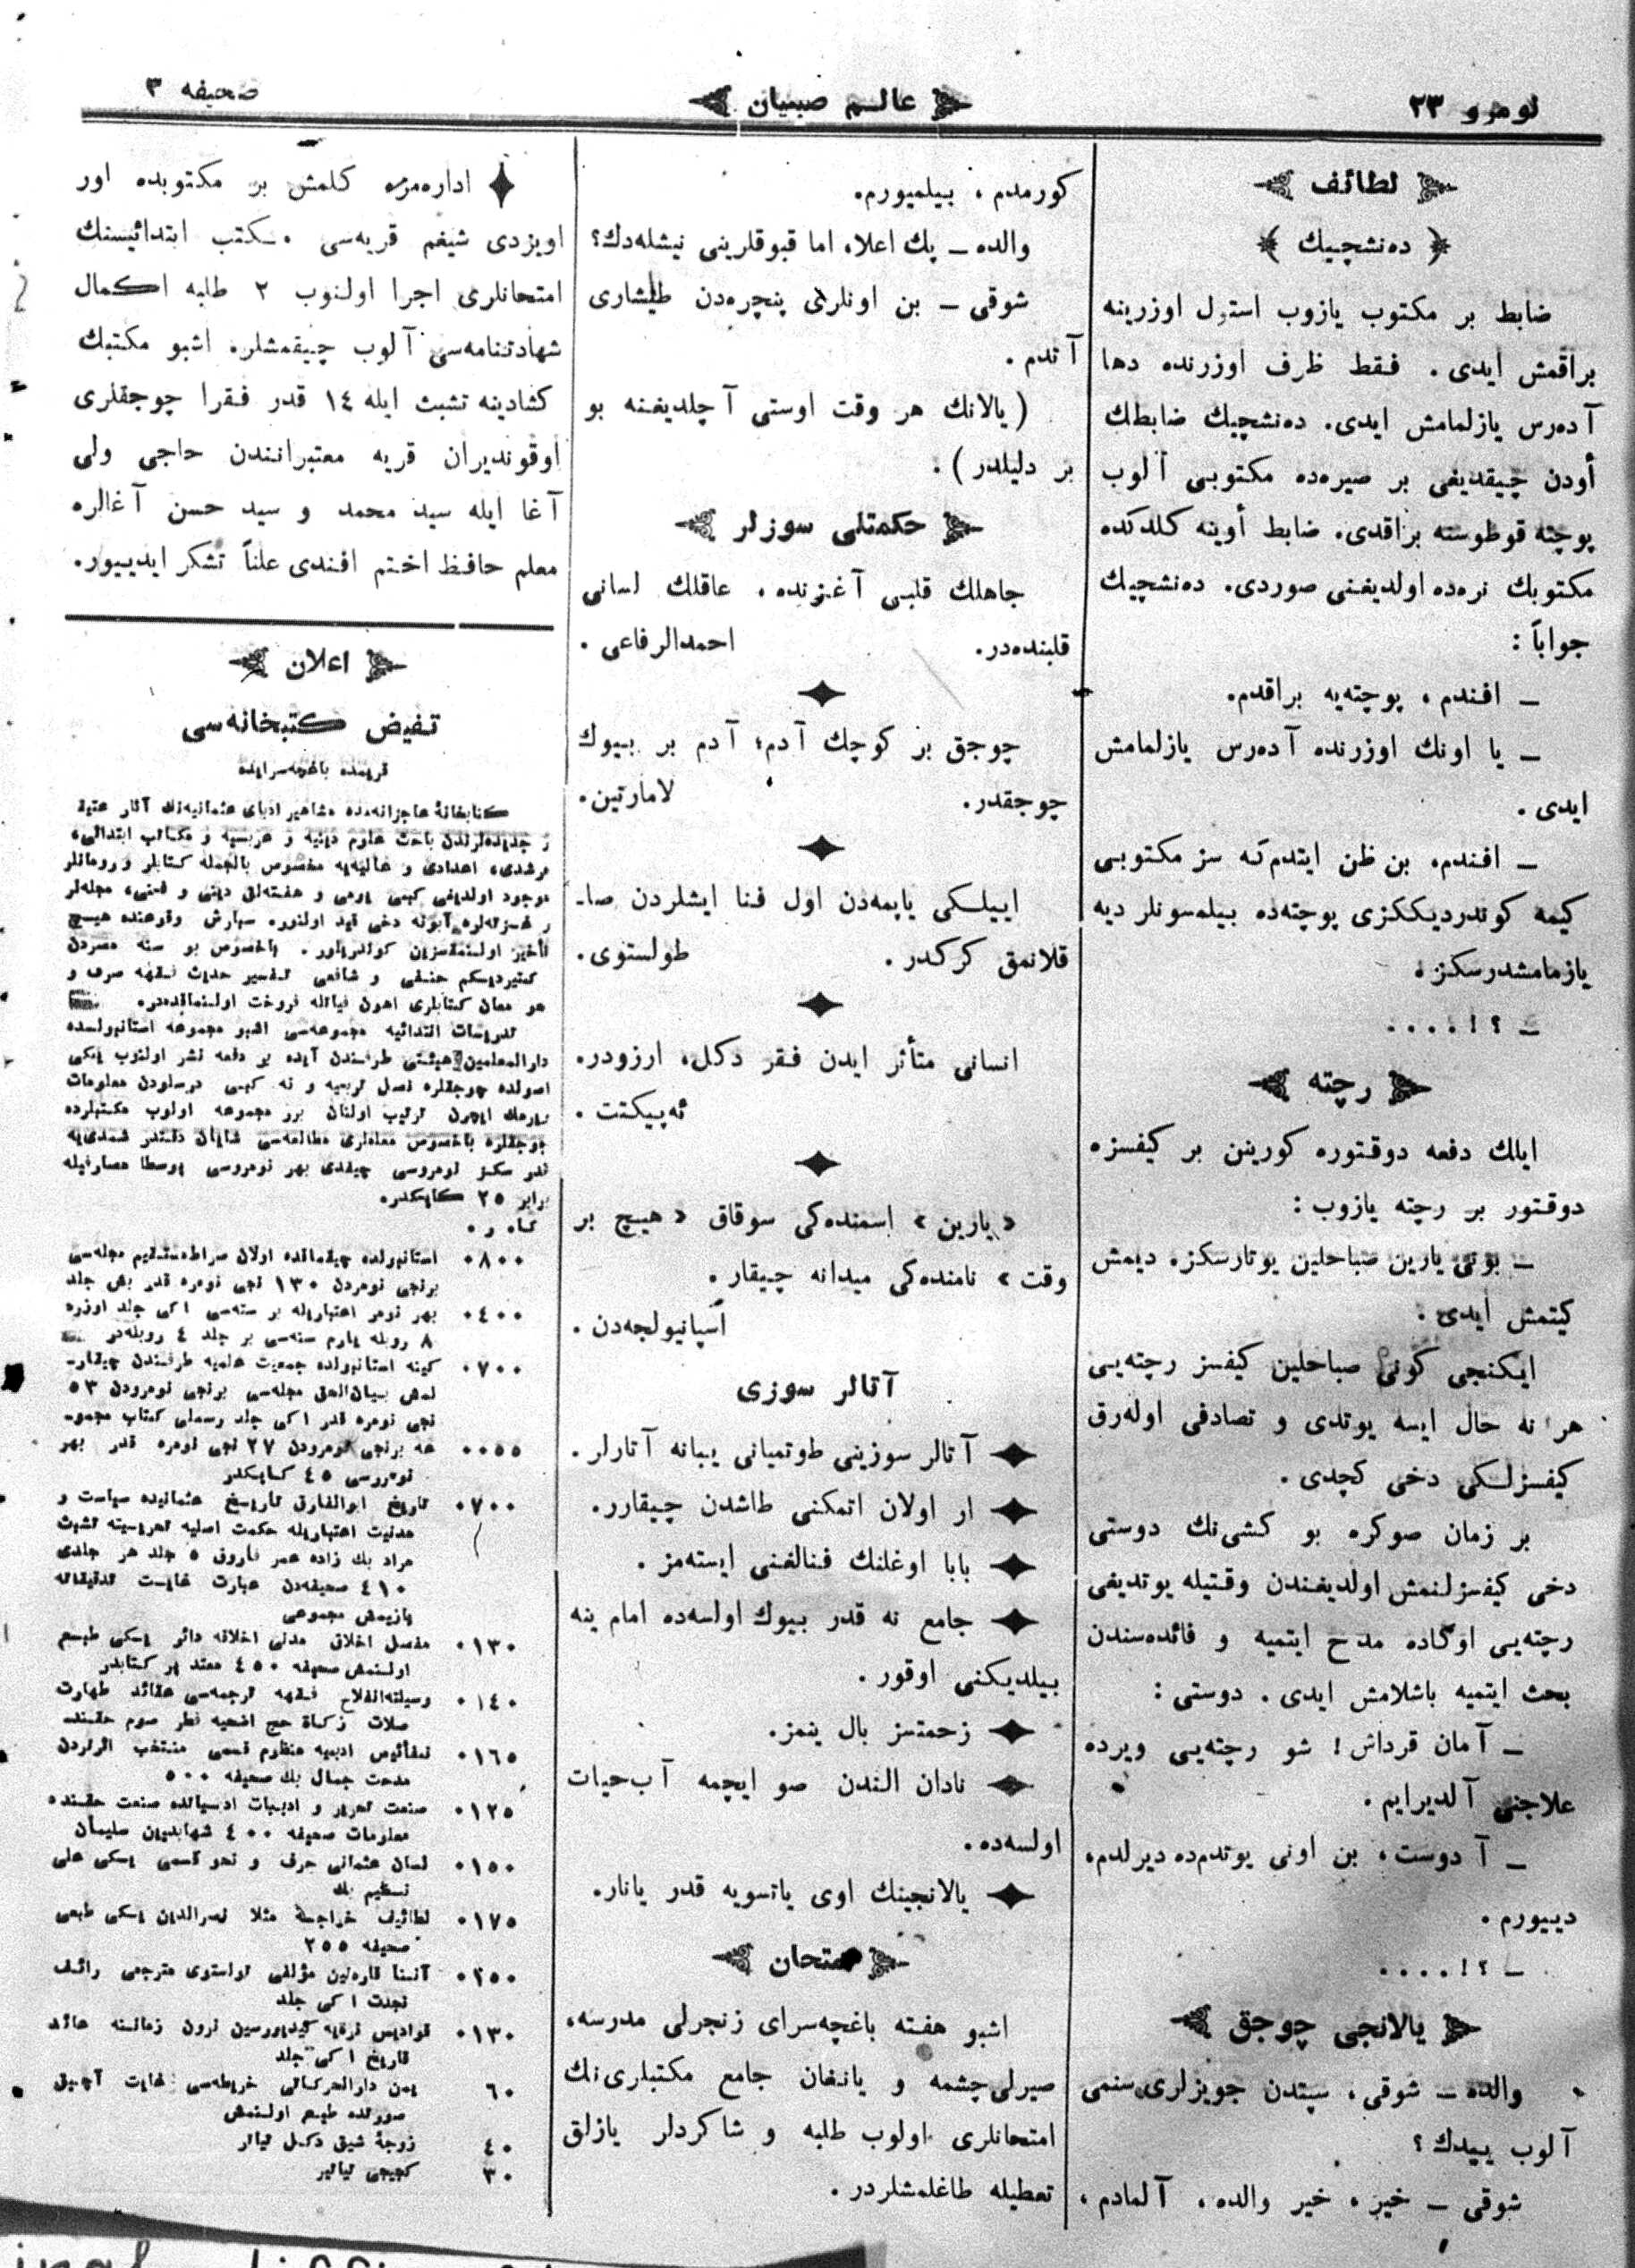 نومرو ٢٣
عالم صبیان
صحیفه ٣
لطائف
﴿ ده‌نشچیك ﴾
ضابط بر مکتوب یازوب استول اوزرینه
براقمش ایدی . فقط ظرف اوزرنده دها
آده‌رس یازلمامش ایدی. ده‌نشچیك ضابطك
أودن چیقدیغی بر صیره‌ده مکتوبی آلوب
پوچته قوطوسنه براقدی. ضابط أوینه کلدکده
مکتوبك نره‌ده اولدیغنی صوردی. ده‌نشچیك
جواباً :
ــ افندم ، پوچته‌یه براقدم.
ــ یا اونك اوزرنده آده‌رس یازلمامش
ایدی .
ــ افندم، بن ظن ایتدم که سز مکتوبی
کیمه کوندردیککزی پوچته‌ده بیلمسونلر دیه
یازمامشدرسکز.
ــ ؟!....
رچته
ایلك دفعه دوقتوره کورینن بر کیفسزه
دوقتور بر رچته یازوب :
ــ بونی یارین صباحلین یوتارسکز. دیمش
کیتمش ایدی .
ایکنجی کونی صباحلین کیفسز رچته‌یی
هر نه حال ایسه یوتدی و تصادفی اوله‌رق
کیفسزلکی دخی کچدی .
بر زمان صوکره بو کشی‌نك دوستی
دخی کیفسزلنمش اولدیغندن وقتیله یوتدیغی
رچته‌یی اوکاده مدح ایتمیه و فائده‌سندن
بحث ایتمیه باشلامش ایدی . دوستی :
ــ آمان قرداش! شو رچته‌یی ویرده
علاجنی آلدیرایم .
ــ آ دوست ، بن اونی یوتدم‌ده دیرلدم،
دییورم .
ــ ؟!....
یالانجی چوجق
والده ــ شوقی ، سپتدن جویزلری سنمی
آلوب ییدك ؟
شوقی ــ خیر ، خیر والده ، آلمادم ،
کورمدم ، بیلمیورم.
والده ــ پك اعلا، اما قبوقلرینی نیشله‌دك؟
شوقی ــ بن اونلری پنچره‌دن طیشاری
آتدم .
(یالانك هر وقت اوستی آچلدیغنه بو
بر دلیلدر) .
حکمتلی سوزلر
جاهلك قلبی آغزنده ، عاقلك لسانی
قلبنده‌در. احمدالرفاعی .
چوجق بر کوچك آدم؛ آدم بر بیوك
چوجقدر. لامارتین.
اییلکی یاپمه‌دن اول فنا ایشلردن صا۔
قلانمق کرکدر . طولستوی.
انسانی متأثر ایدن فقر دکل، ارزودر.
ئه‌پیکتت .
«یارین» اسمنده‌کی سوقاق «هیچ بر
وقت» نامنده‌کی میدانه چیقار .
اسپانیولجه‌دن .
آتالر سوزی
آتالر سوزینی طوتمیانی یبانه آتارلر .
ار اولان اتمکنی طاشدن چیقارر.
بابا اوغلنك فنالغنی ایسته‌مز .
جامع نه قدر بیوك اولسه‌ده امام ینه
بیلدیکنی اوقور .
زحمتسز بال ینمز.
نادان الندن صو ایچمه آب‌حیات
اولسه‌ده.
یالانجینك اوی یاتسویه قدر یانار.
امتحان
اشبو هفته باغچه‌سرای زنجرلی مدرسه،
صیرلی‌چشمه و یانغان جامع مکتبلری‌نك
امتحانلری اولوب طلبه و شاکردلر یازلق
تعطیله طاغلمشلردر .
اداره‌مزه کلمش بر مکتوبده اور
اویزدی شیغم قریه‌سی مکتب ابتدائیسنك
امتحانلری اجرا اولنوب ٢ طلبه اکمال
شهادتنامه‌سی آلوب چیقمشلر. اشبو مکتبك
کشادینه تشبث ایله ١٤ قدر فقرا چوجقلری
اوقوندیران قریه معتبرانندن حاجی ولی
آغا ایله سید محمد و سید حسن آغالره
معلم حافظ اختم افندی علناً تشکر ایدییور.
اعلان
تفیض کتبخانه‌سی
قریمده باغچه‌سرایده
کتابخانهٔ عاجزانه‌مده مشاهیر ادبای عثمانیه‌نك آثار عتیقه
و جدیده‌لرندن باحث علوم دینیه و عربیه و مکاتب ابتدائی،
رشدی، اعدادی و عالیه‌یه مخصوص بالجمله کتابلر و رومانلر
موجود اولدیغی کبی یومی و هفته‌لق دینی و فنی، مجله‌لر
و غزته‌لره آبونه دخی قید اولنور. سپارش وقوعنده هیچ
تأخیر اولنمقسزین کوندریلور . باخصوص بو سنه مصردن
کتیردیکم حنفی و شافعی تفسیر حدیث فقهه صرف و
نحو معان کتابلری اهون فیاتله فروخت اولنماقده‌در.
تدریسات ابتدائیه مجموعه‌سی اشبو مجموعه استانبولده
دارالمعلمین هیئتی طرفندن آیده بر دفعه نشر اولنوب یکی
اصولده چوجقلره نصل تربیه و نه کبی درسلردن معلومات
ویرمك ایچون ترتیب اولنان بر مجموعه اولوب مکتبلرده
چوجقلره باخصوص معلملری مطالعه‌سی شایان دقتدر شمدی‌یه
قدر سکز نومروسی چیقدی بهر نومروسی پوسطا مصارفیله
برابر ٢٥ کاپکدر.
کا. ر .
٠٨٠٠ استانبولده چیقماقده اولان صراط‌مستقیم مجله‌سی
برنجی نومردن ١٣٠ نجی نومره قدر بش جلد
٠٤٠٠ بهر نومر اعتباریله بر سنه‌سی ایکی جلد اوزره
٨ روبله یارم سنه‌سی بر جلد ٤ روبله‌در
٠٧٠٠ کینه استانبولده جمعیت علمیه طرفندن چیقار۔
لمش بیان‌الحق مجله‌سی برنجی نومرودن ٥٣
نجی نومره قدر ایکی جلد رسملی کتاب مجمو۔
٠٠٥٥ عه برنجی نومرودن ٢٧ نجی نومره قدر بهر
نومروسی ٤٥ کاپکدر
٠٧٠٠ تاریخ ابوالفاروق تاریخ عثمانیده سیاست و
مدنیت اعتباریله حکمت اصلیه تحریسنه تشبث
مراد بك زاده عمر فاروق ٥ جلد هر جلدی
٤١٠ صحیفه‌دن عبارت غایت تدقیقاتله
یازیمش مجموعی
٠١٣٠ مفصل اخلاق مدنی اخلاقه دائر یکی طبع
اولنمش صحیفه ٤٥٠ معتد بر کتابدر
٠١٤٠ وسیلته‌الفلاح فقهه ترجمه‌سی عقائد طهارت
صلات زکاة حج اضحیه فطر صوم حقنده
٠١٦٥ نفائس ادبیه منظوم قسمی منتخب اثرلردن
مدحت جمال بك صحیفه ٥٠٠
٠١٢٥ صنعت تحریر و ادبیات ادبیاتده صنعت حقنده
معلومات صحیفه ٤٠٠ شهابدین سلیمان
٠١٥٠ لسان عثمانی صرف و نحو قسمی یکی علی
نظیم بك
٠١٧٥ لطائف خواجه ملا نصرالدین یکی طبعی
صحیفه ٢٥٥
٠٢٥٠ آننا قاره‌نین مؤلفی تولستوی مترجمی رائف
نجدت ایکی جلد
٠١٣٠ قوادیس ترقیه کیدیورسین نرون زمانته عائد
تاریخ ایکی جلد
٦٠ یمن دارالحرکاتی خریطه‌سی غایت آچیق
صورتده طبع اولنمش
٤٠ زوجهٔ شیق دکل تیاتر
٣٠ کچیجی تیاتر